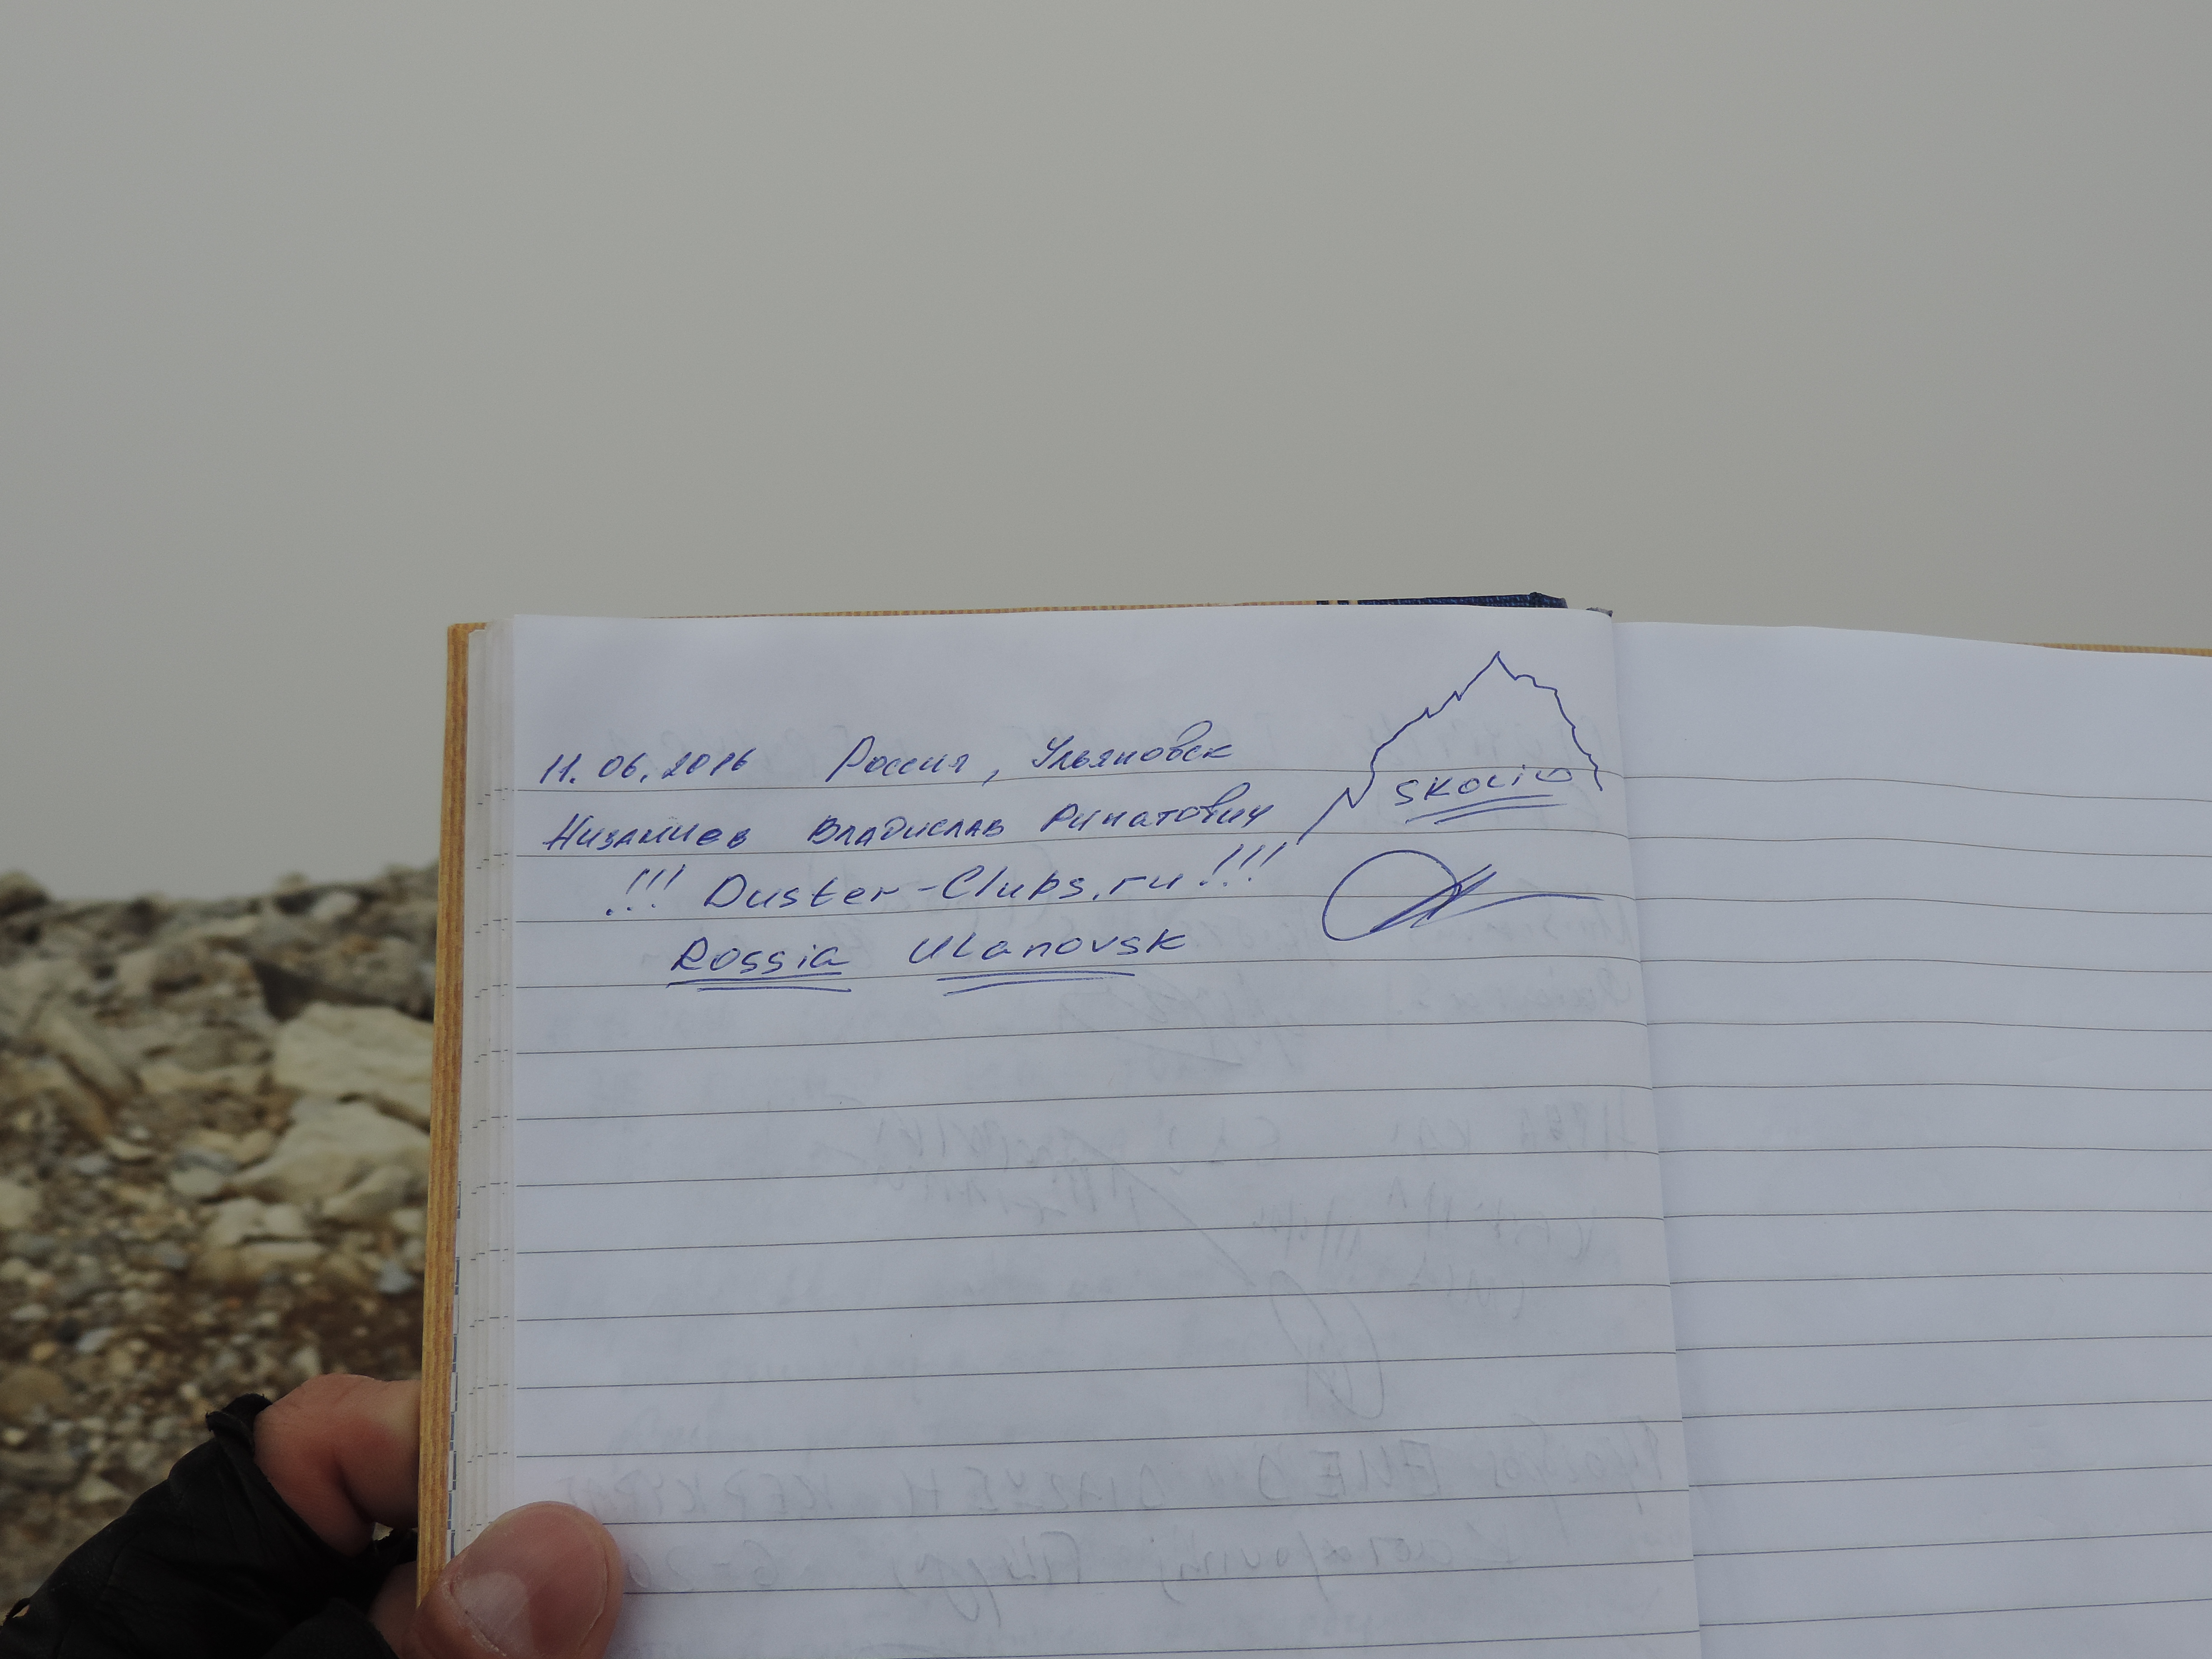 11.06.2016 Россия, Ульяновск
Низамиев Владислав Ринатович
!!! Duster-Clubs.ru!!!
Rossia Ulanovsk
SKOLIO